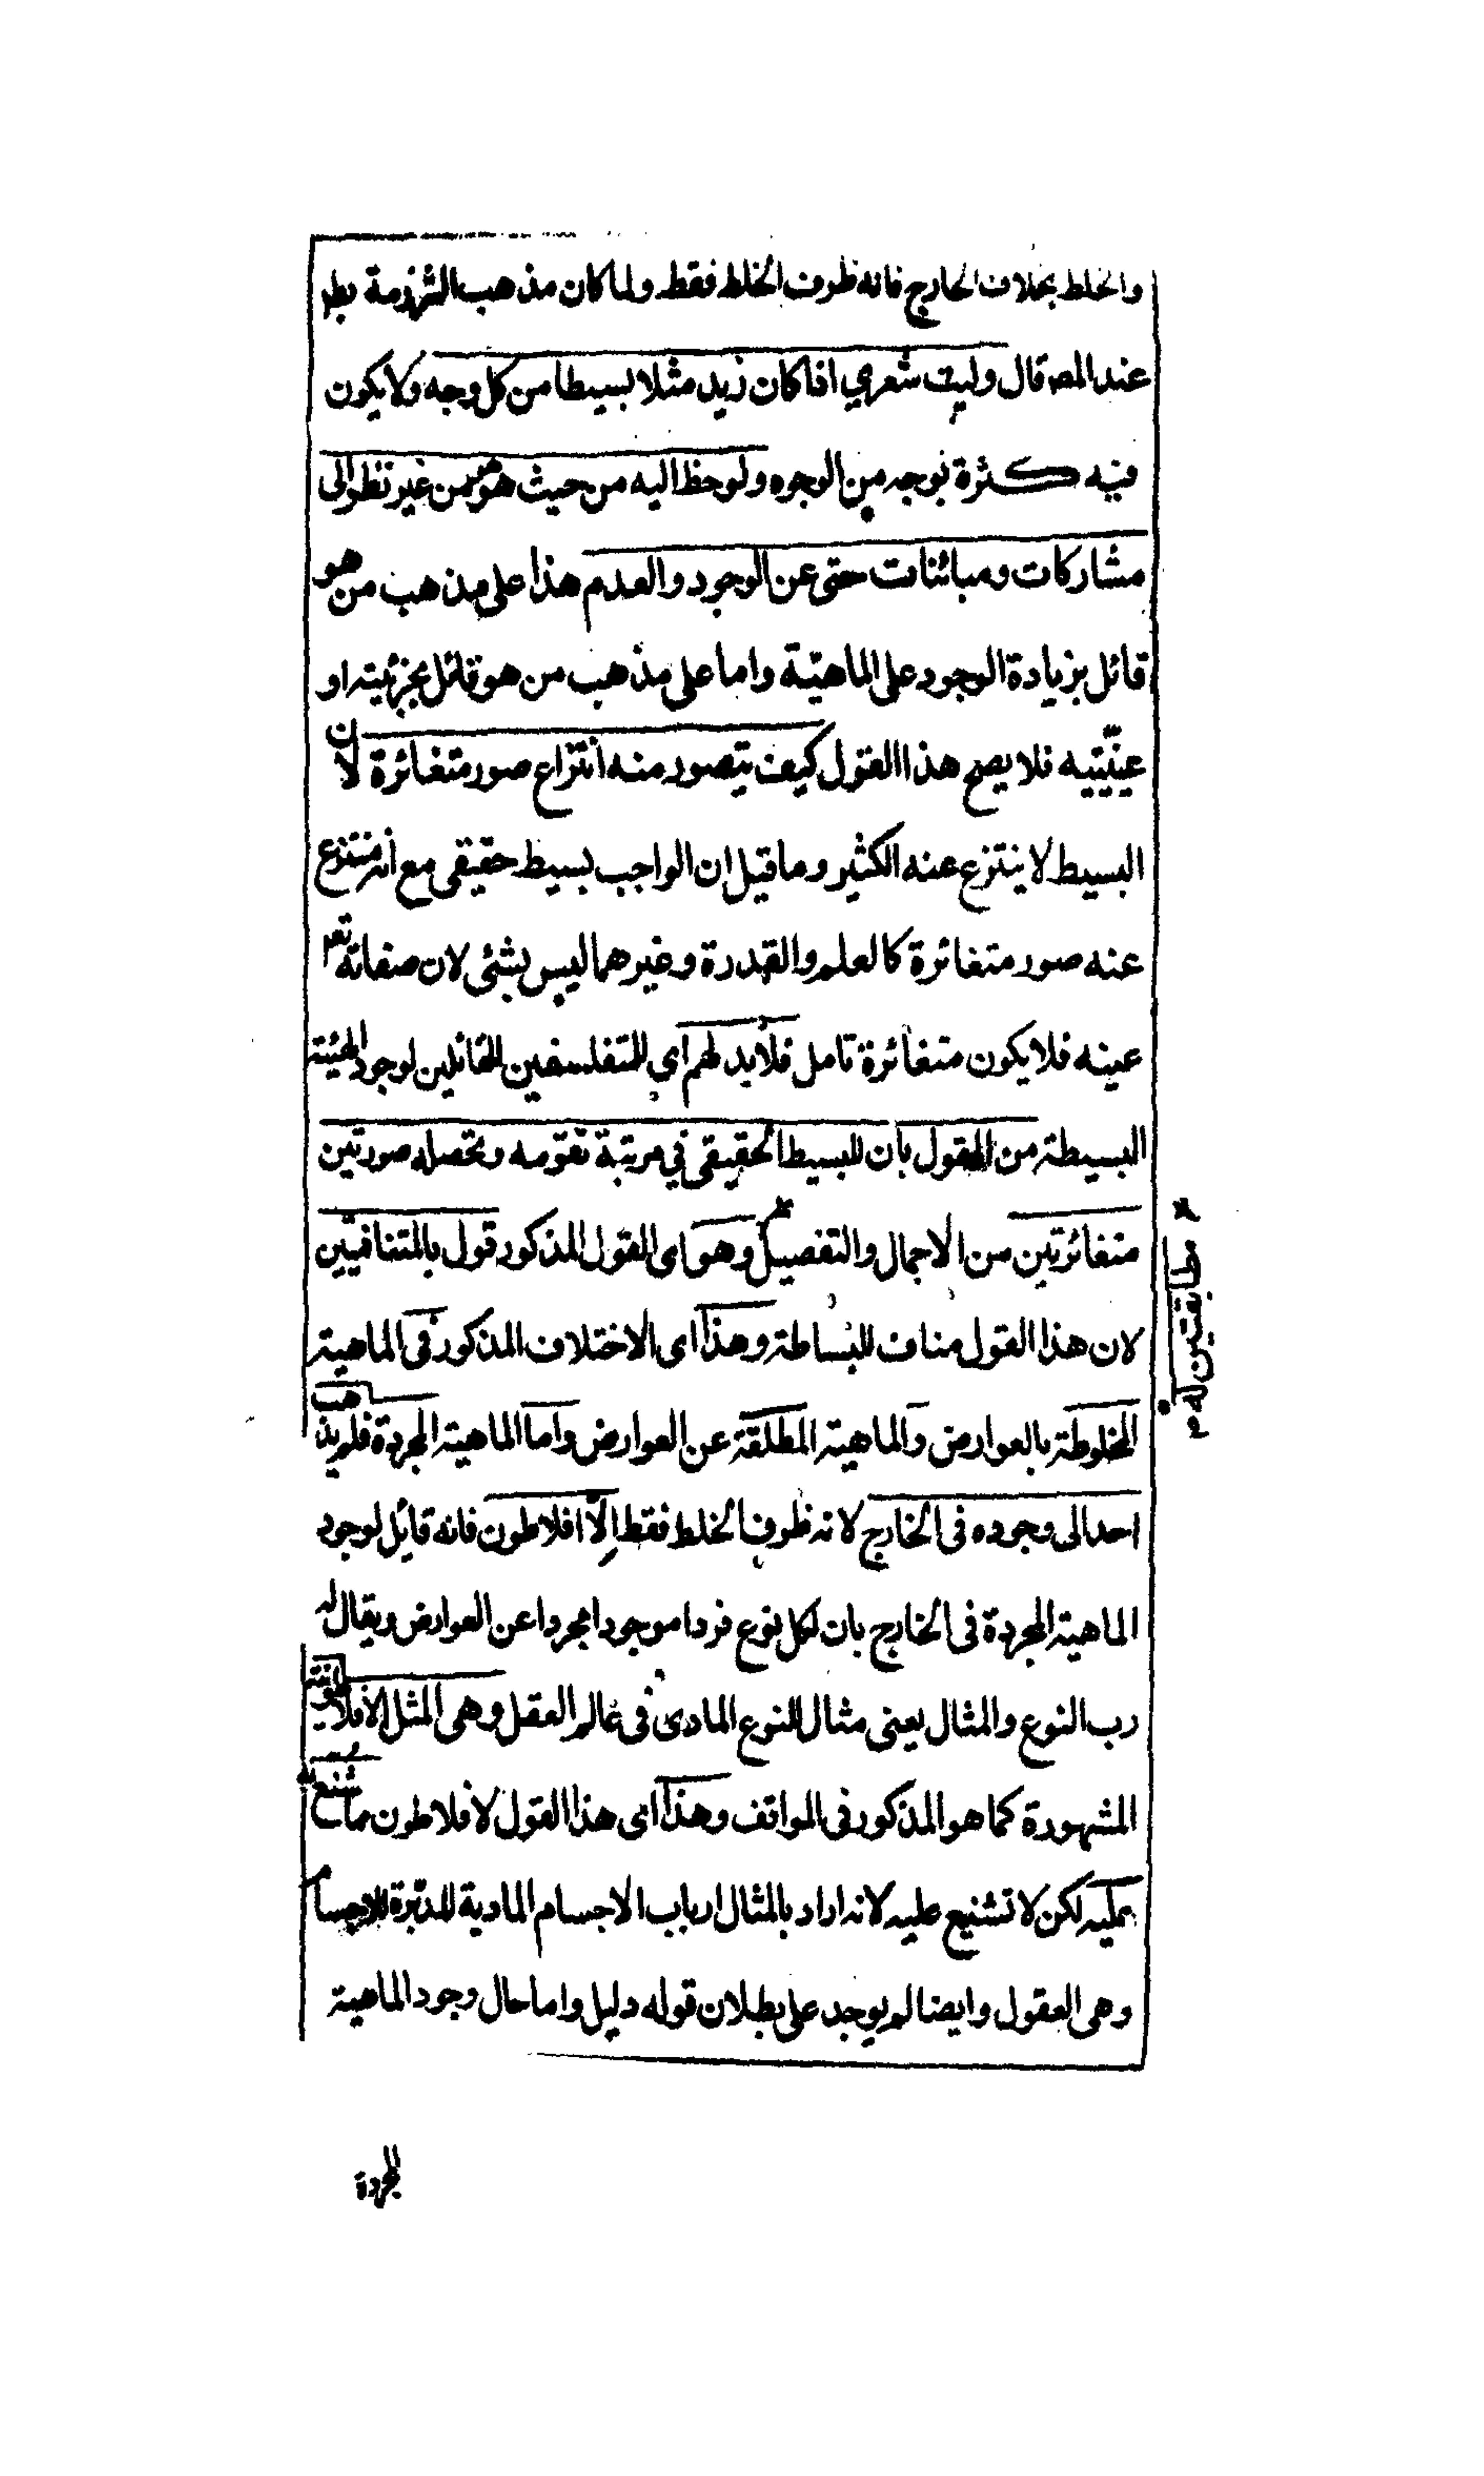 والخلط بخلاف الخارج فانه ظرف الخلط فقط ولما كان مذهب الشرذمة
عند المص قال وليت شعري اذا كان زيد مثلا بسيطا من كل وجه ولا يكون
فيه كثرة بوجه من الوجوه ولوحظ اليه من حيث هو هو من غير نظر الى
مشاركات ومبائنات حتى عن الوجود والعدم هذا على مذهب من هو
قائل بزيادة الوجود على الماهيّة واما على مذهب من هو قائل بجزئيته او
عينّيتيه فلا يصح هذا القول كيف يتصور منه انتزاع صور متغائرة لان
البسيط لا ينتزع عنه الكثير وما قيل ان الواجب بسيط حقيقى مع انه منتزع
عنه صور متغائرة كالعلم والقدرة وغيرهما ليس بشئى لان صفاته تعم
عينه فلا يكون متغائرة تامل فلابد لهم اي للمتفلسفين القائلين لوجود الهيئية
البسيطة من القول بان للبسيط الحقيقى في مرتبة تقوّمه وتحصله صورتين
متغائرتين من الاجمال والتفصيل وهو اى القول المذكور قول بالمتنافيين
لان هذا القول مناف للبساطة وهذا اى الاختلاف المذكور فى الماهية
المخلوطة بالعوارض والماهية المطلقة عن العوارض واما الماهية المجردة فلم يذهب
احد الى وجوده فى الخارج لانه ظرف الخلط فقط الّا افلاطون فانه قايل لوجود
الماهية المجردة فى الخارج بان لكل نوع فردا موجودا مجردا عن العوارض ويقال له
رب النوع والمثال يعنى مثال النوع المادى فى عالم العقل وهى المثل الافلاطونية
المشهورة كما هو المذكور فى المواقف وهذا اى هذا القول لافلاطون مما شنع به
عليه لكن لا تشنيع عليه لانه اراد بالمثال ارباب الاجسام المادية المدبّرة للاجسام
وهى العقول وايضا لم يوجد على بطلان قوله دليل واما حال وجود الماهية
المجردة
مطابقتين له م